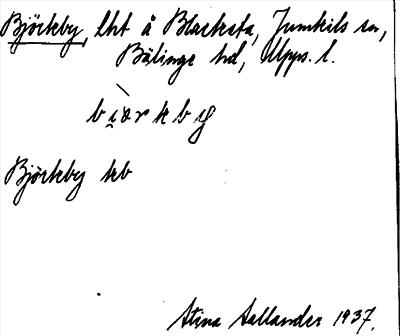 Björkby, lht å Blacksta, Jumkils sn,
Bälinge hd, Upps. l.
bi̯ærkby
Björkby kb
Stina Sallander 1937.